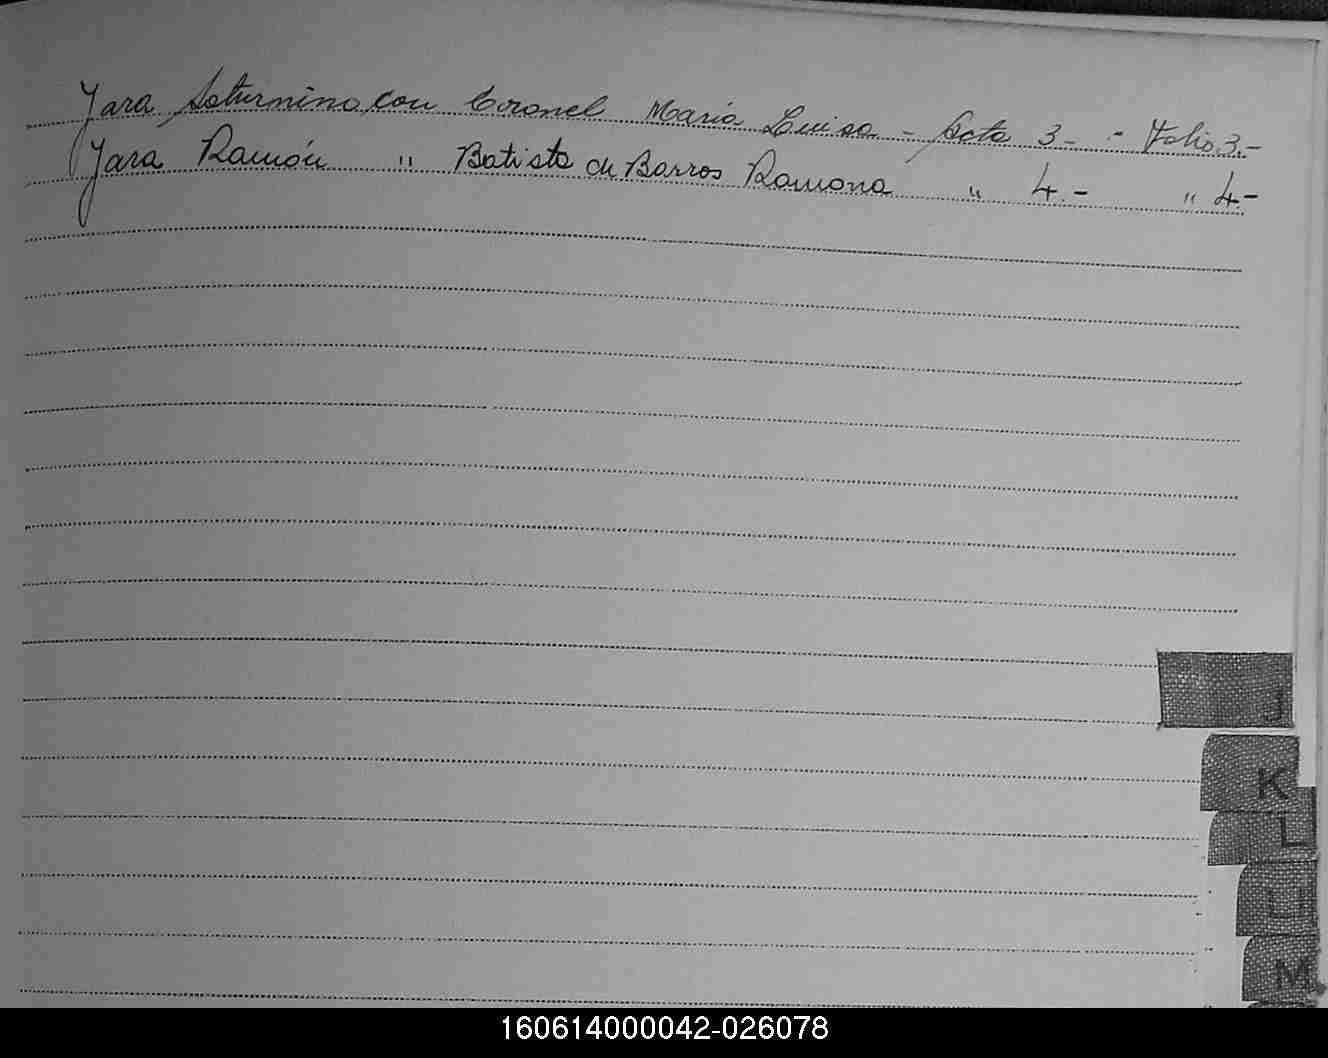 Jara Saturnino con Coronel Maria Luisa - Acta 3 - - Folio 3.-
Jara Ramón " Batista de Barros Ramona " 4.- " 4.-
J
K
L
LL
M
160614000042-026078